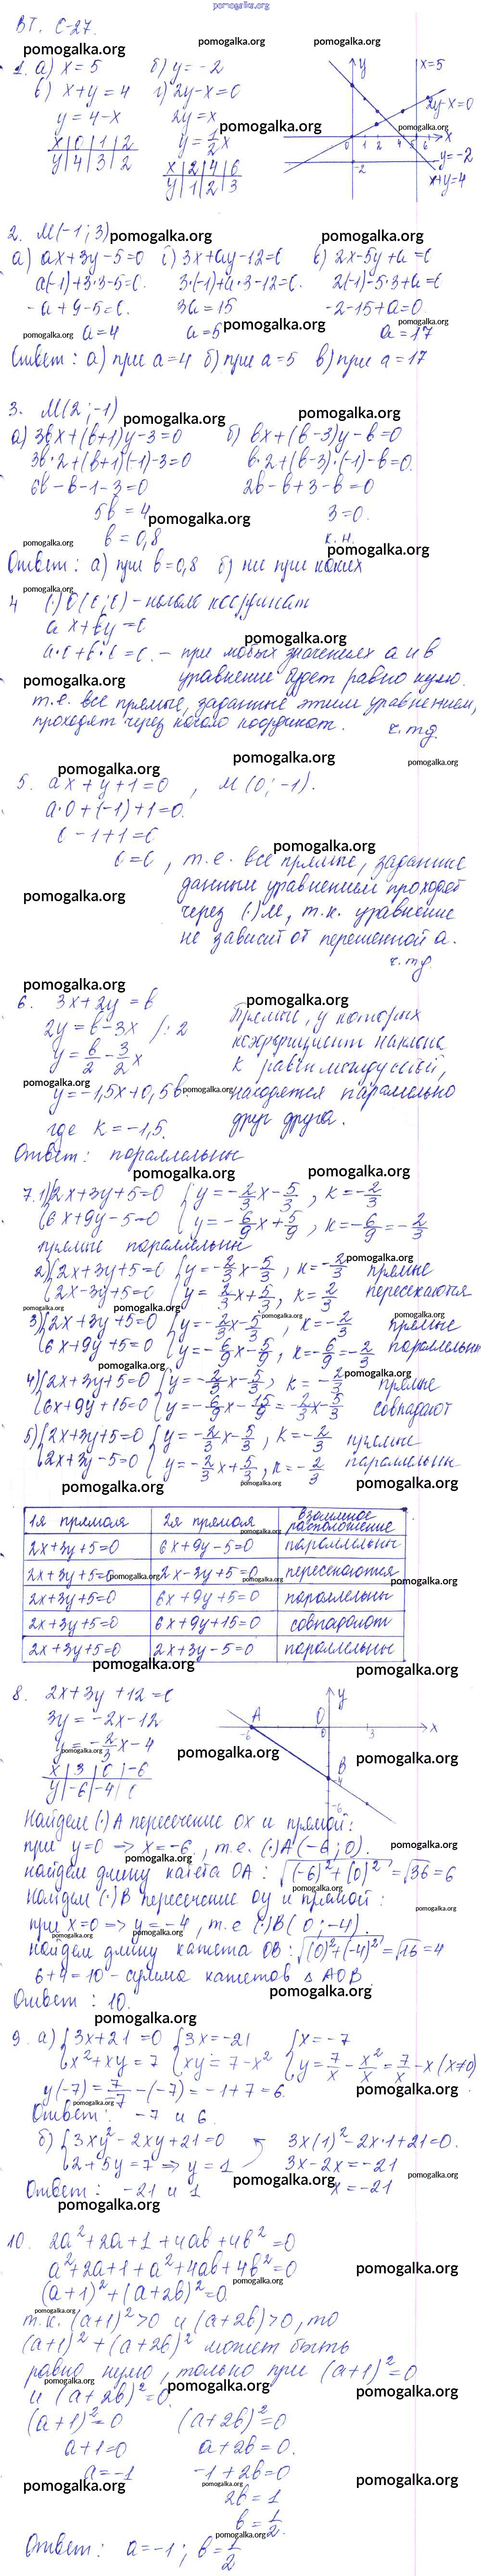 pomogalka.org
ВТ. С-27.
1. а) x = 5   б) y = -2
в) x + y = 4   г) 2y - x = 0
y = 4 - x   2y = x
x | 0 | 1 | 2   y = 1/2 x
y | 4 | 3 | 2   x | 2 | 4 | 6
y | 1 | 2 | 3
y   x=5
2y-x=0
0 1 2 4 5 6 x
-2   y=-2
x+y=4
2. М(-1; 3)
а) ax+3y-5=0   б) 3x+ay-12=0   в) 2x-5y+a=0
a(-1)+3·3-5=0.   3·(-1)+a·3-12=0.   2(-1)-5·3+a=0
-a+9-5=0.   3a=15   -2-15+a=0.
a=4   a=5   a=17
Ответ: а) при a=4 б) при a=5 в) при a=17
3. М(2; -1)
а) 3bx+(b+1)y-3=0   б) bx+(b-3)y-b=0
3b·2+(b+1)(-1)-3=0   b·2+(b-3)·(-1)-b=0.
6b-b-1-3=0   2b-b+3-b=0
5b=4   3=0.
b=0,8   к.н.
Ответ: а) при b=0,8   б) ни при каких
4   (·) О(0; 0) - начало координат
ax+by=0
a·0+b·0=0. - при любых значениях a и b
уравнение будет равно нулю.
т.е. все прямые, заданные этим уравнением,
проходят через начало координат.   ч.т.д.
5. ax+y+1=0 , М(0; -1).
a·0+(-1)+1=0.
0-1+1=0
0=0, т.е. все прямые, заданные
данным уравнением проходят
через (·)М, т.к. уравнение
не зависит от переменной a.
ч.т.д.
6. 3x+2y=b   Прямые, у которых
2y=b-3x /:2   коэффициент наклона
y=b/2-3/2x   k равен между собой,
y=-1,5x+0,5b   находятся параллельно
где k=-1,5.   друг друга.
Ответ: параллельны
7. 1) {2x+3y+5=0   {y=-2/3x-5/3, k=-2/3
{6x+9y-5=0   {y=-6/9x+5/9, k=-6/9=-2/3
прямые параллельны
2) {2x+3y+5=0   {y=-2/3x-5/3, k=-2/3   прямые
{2x-3y+5=0   {y=2/3x+5/3, k=2/3   пересекаются
3) {2x+3y+5=0   {y=-2/3x-5/3, k=-2/3   прямые
{6x+9y+5=0   {y=-6/9x-5/9, k=-6/9=-2/3   параллельны
4) {2x+3y+5=0   {y=-2/3x-5/3, k=-2/3   прямые
{6x+9y+15=0   {y=-6/9x-15/9=-2/3x-5/3   совпадают
5) {2x+3y+5=0   {y=-2/3x-5/3, k=-2/3   прямые
{2x+3y-5=0   {y=-2/3x+5/3, k=-2/3   параллельны
1я прямая | 2я прямая | взаимное расположение
2x+3y+5=0 | 6x+9y-5=0 | параллельны
2x+3y+5=0 | 2x-3y+5=0 | пересекаются
2x+3y+5=0 | 6x+9y+5=0 | параллельны
2x+3y+5=0 | 6x+9y+15=0 | совпадают
2x+3y+5=0 | 2x+3y-5=0 | параллельны
8. 2x+3y+12=0
3y=-2x-12
y=-2/3x-4
x | 3 | 0 | -6
y | -6 | -4 | 0
y
A   O
-6   0   3   x
B
-4
-6
Найдем (·) А пересечение ОХ и прямой:
при y=0 => x=-6., т.е. (·) А(-6; 0).
найдем длину катета ОА: √(-6)²+(0)²=√36=6
Найдем (·) В пересечение Оу и прямой:
при x=0 => y=-4, т.е (·) В(0; -4).
найдем длину катета ОВ: √(0)²+(-4)²=√16=4
6+4=10 - сумма катетов Δ АОВ.
Ответ: 10.
9. а) {3x+21=0   {3x=-21   {x=-7
{x²+xy=7   {xy=7-x²   {y=7/x-x²/x=7/x-x (x≠0)
y(-7)=7/-7-(-7)=-1+7=6.
Ответ: -7 и 6.
б) {3xy²-2xy+21=0   3x(1)²-2x·1+21=0.
{2+5y=7 => y=1   3x-2x=-21
Ответ: -21 и 1   x=-21
10. 2a²+2a+1+4ab+4b²=0
a²+2a+1+a²+4ab+4b²=0
(a+1)²+(a+2b)²=0.
т.к. (a+1)²>0 и (a+2b)>0, то
(a+1)²+(a+2b)² может быть
равно нулю, только при (a+1)²=0
и (a+2b)²=0.
(a+1)²=0   (a+2b)²=0
a+1=0   a+2b=0.
a=-1   -1+2b=0
2b=1
b=1/2.
Ответ: a=-1; b=1/2